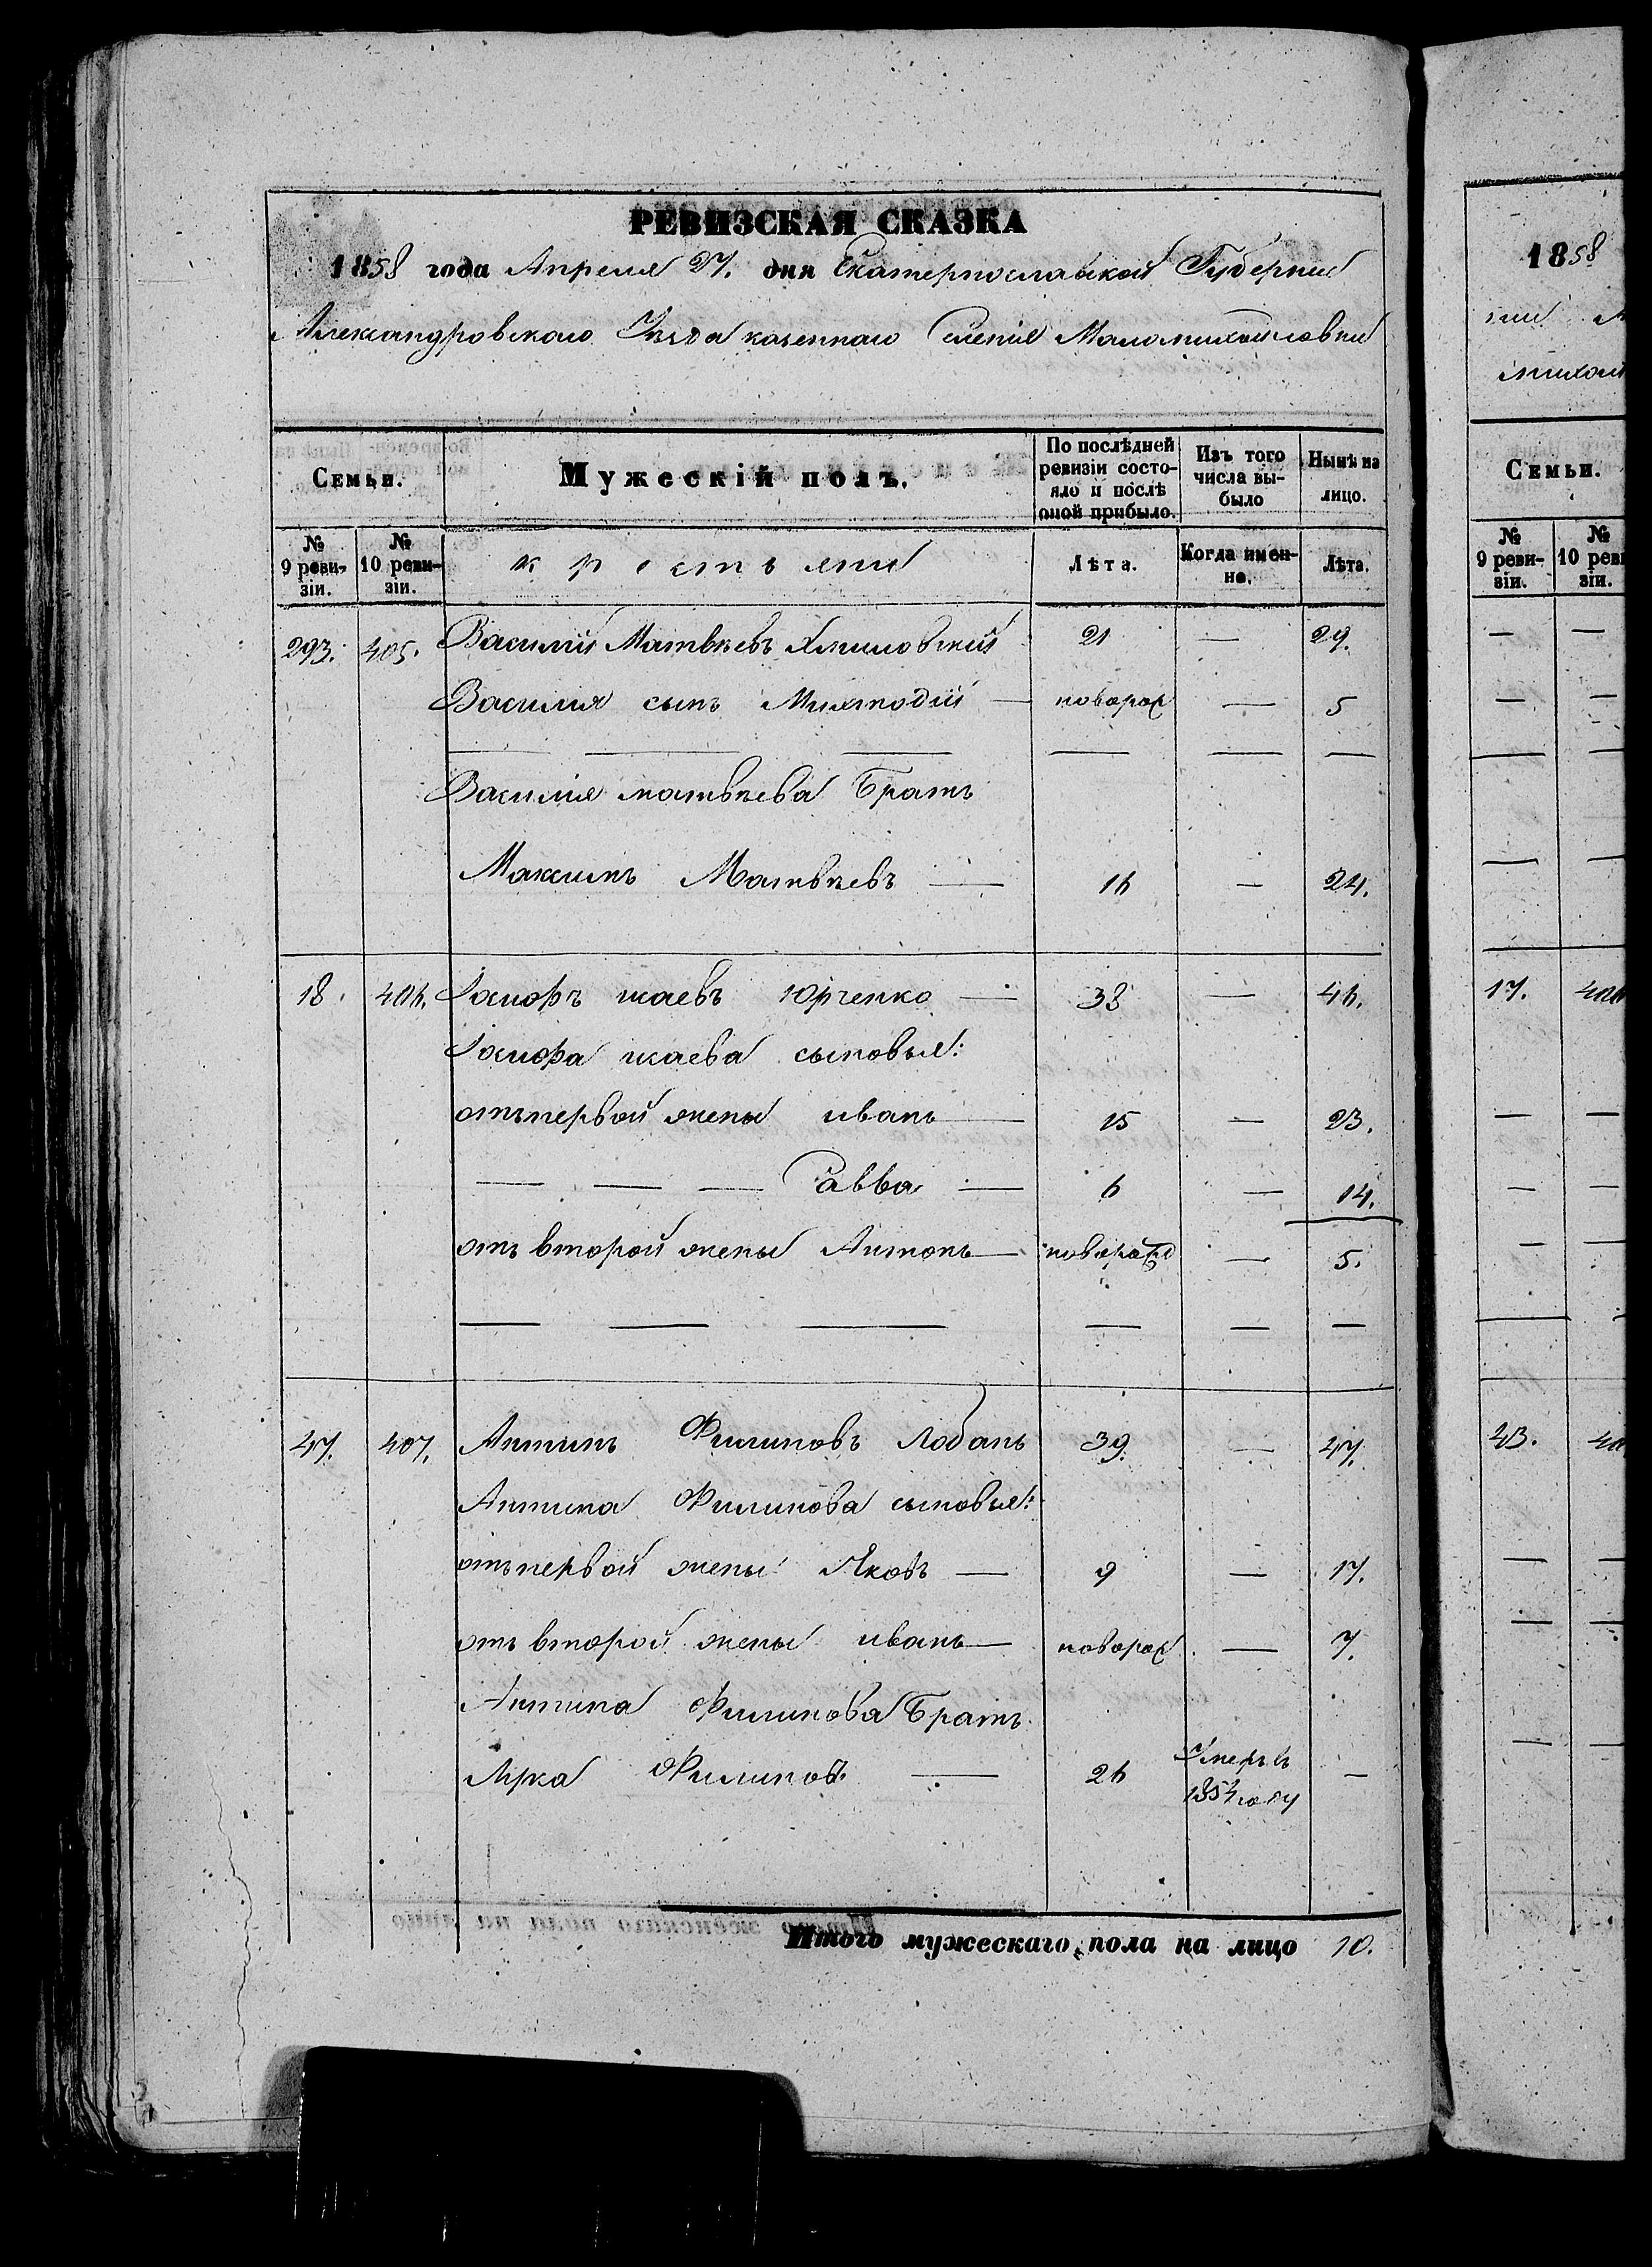 РЕВИЗСКАЯ СКАЗКА
1858 года Апреля 27. дня Екатеринославской Губернии
Александровского Уезда казенного Селения Маломихайловки
Семьи. Мужескій полъ. По послѣдней ревизіи состояло и послѣ оной прибыло. Изъ того числа выбыло Нынѣ на лицо.
№ 9 ревизіи. № 10 ревизіи. крестьяне Лѣта. Когда именно. Лѣта.
293. 405. Василий Матвѣевъ 21 — 29.
Василия сынъ — новорож — 5
Василия матвѣева Братъ
Максимъ Матвѣевъ — 16 — 24.
18. 406. Юрченко — 38 — 46.
сыновья:
отъ первой жены иванъ — 15 — 23.
— — — Савва — 6 — 14.
отъ второй жены Антонъ — новорож — 5.
47. 407. Антипъ Филиповъ Лобань 39. — 47.
Антипа Филипова сыновья:
отъ первой жены Яковъ — 9 — 17.
отъ второй жены иванъ — новорож — 7.
Антипа Филипова Братъ
Филиповъ — 26 Умеръ въ —
году
Итого мужескаго пола на лицо 10.
1858
Семьи.
№ 9 ревизіи. №
17.
43.